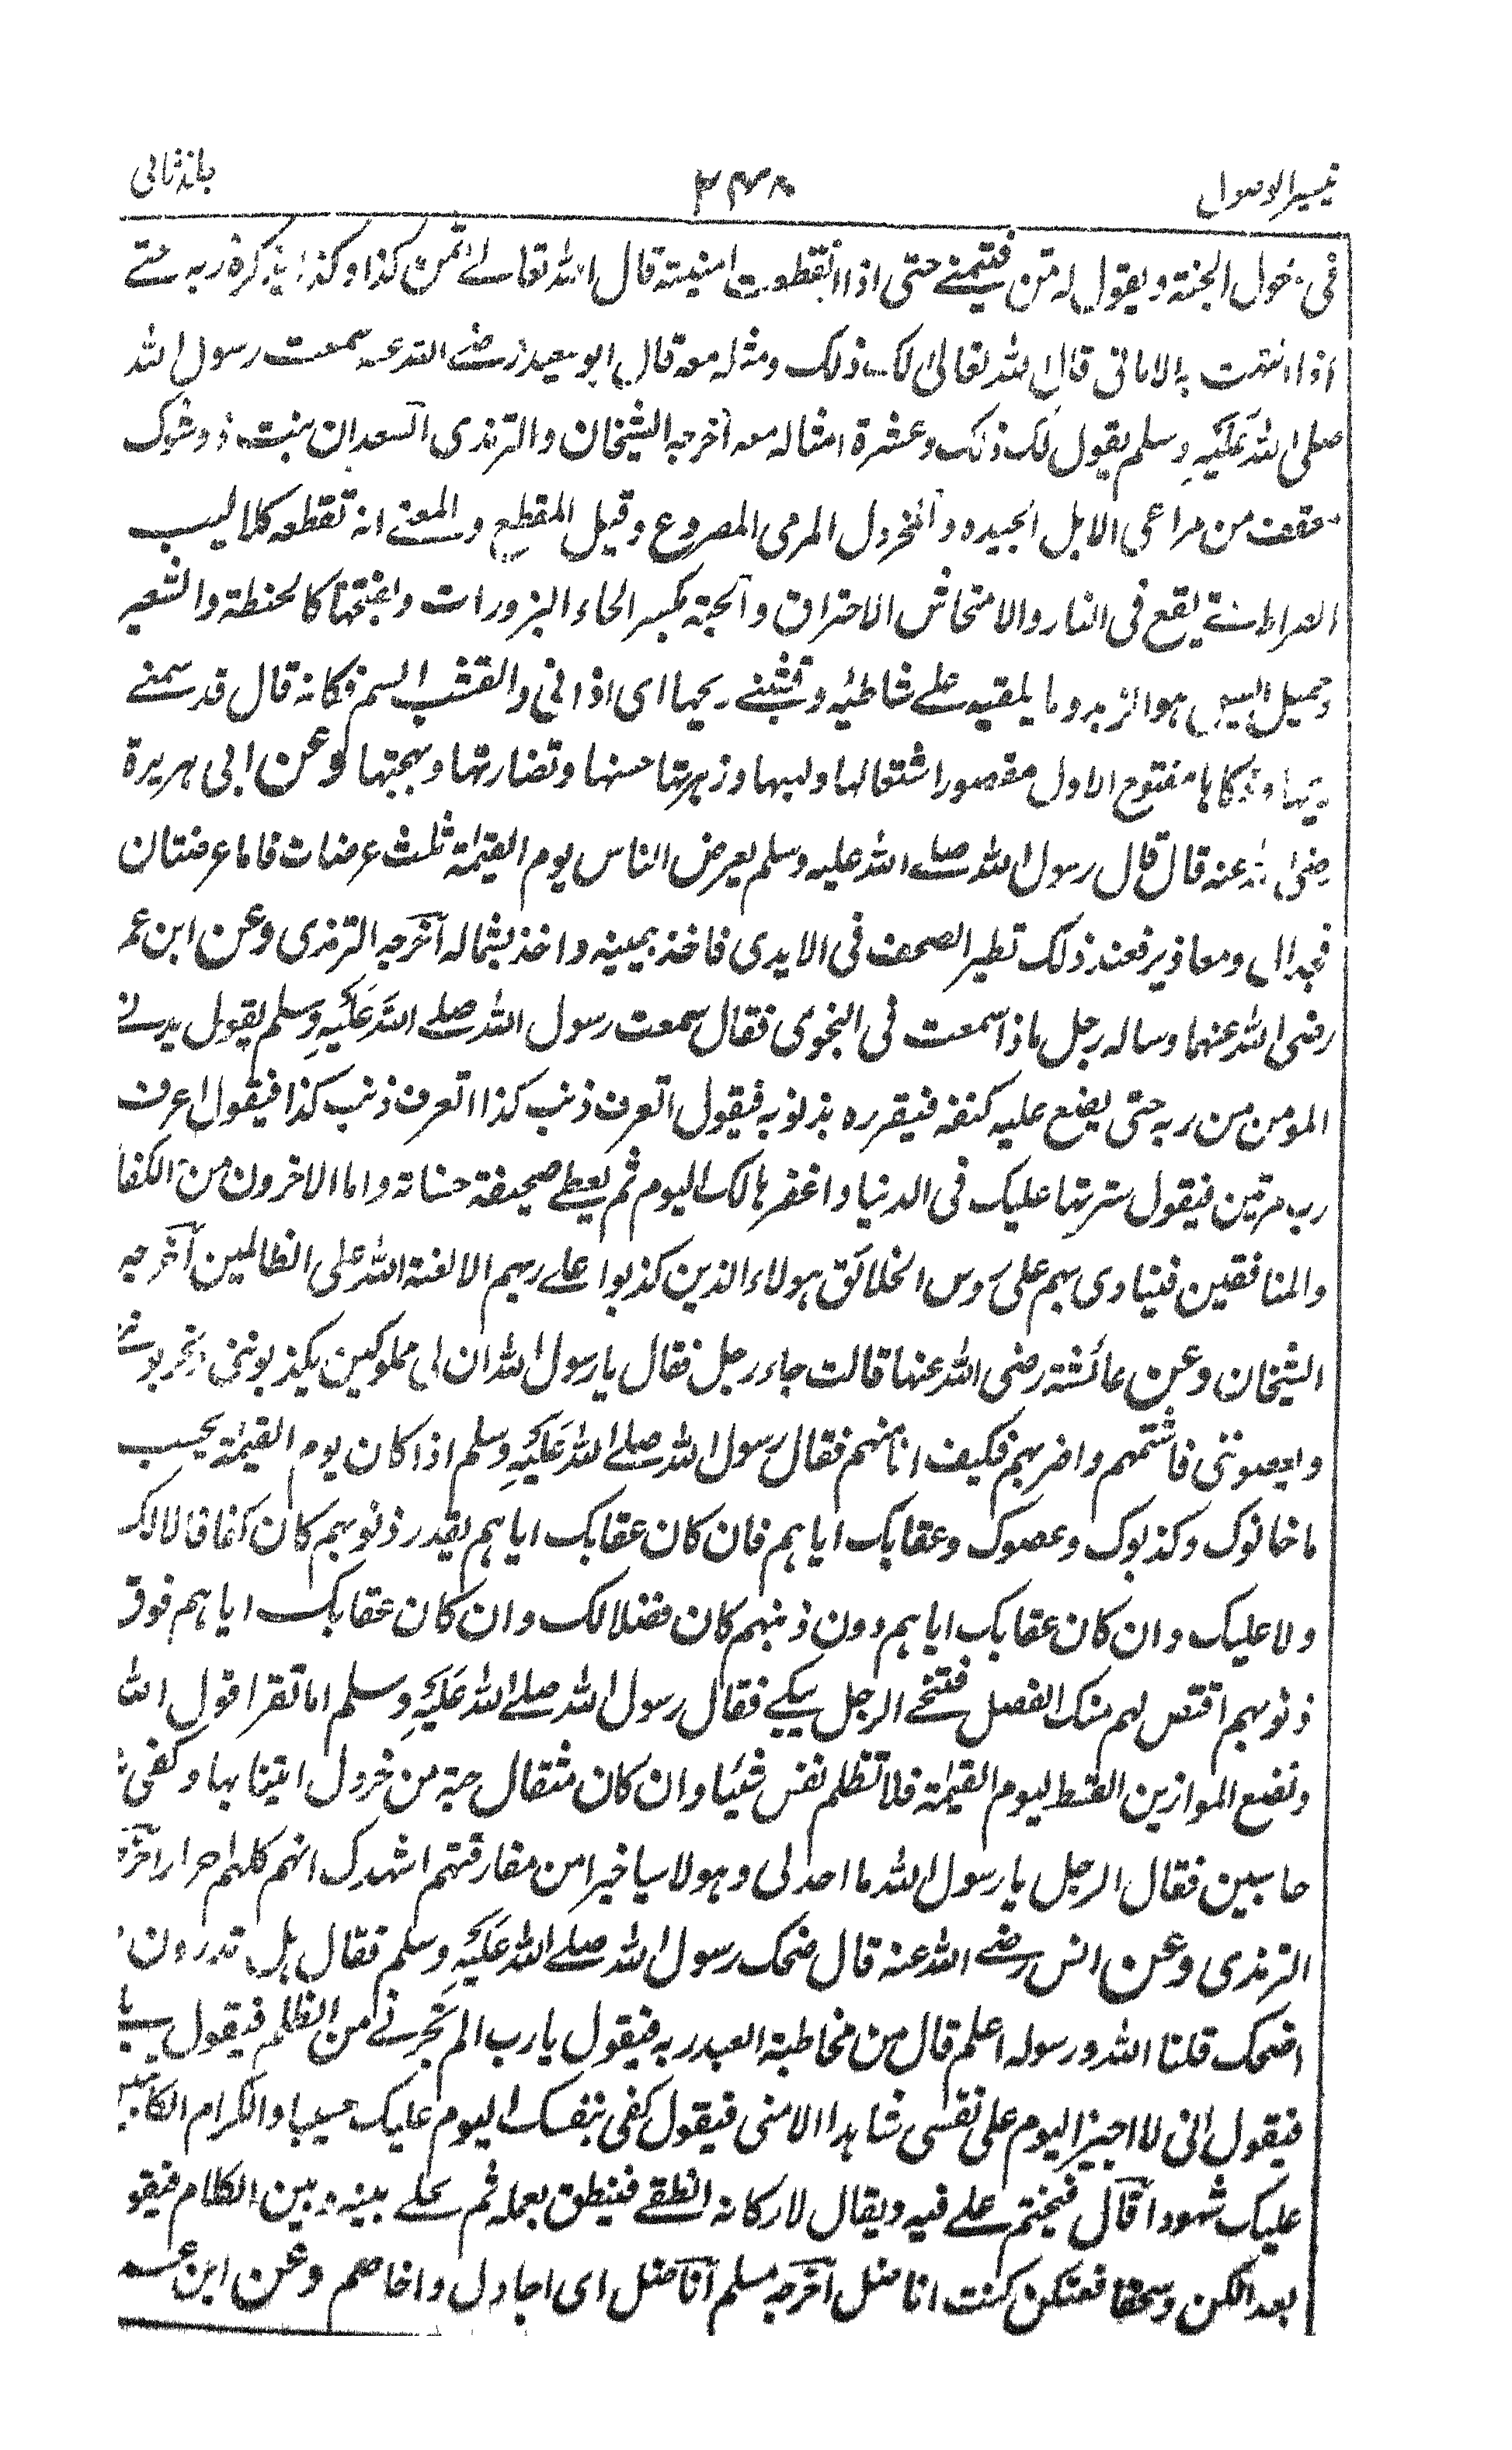 تيسير الوصول ٢٤٨ جلد ثانی
فی دخول الجنة ويقول له تمن فيتمنے حتی اذا انقطعت امنيته قال الله تعالے تمن كذا وكذا يذكره ربه حتے
اذا انتهت به الامانی قال الله تعالیٰ لك ذلك ومثله معه قال ابو سعيد رضے الله عنه سمعت رسول الله
صلی الله عليه وسلم يقول لك ذلك وعشرة امثاله معه اخرجه الشيخان والترمذی السعدان نبت ذو شوك
معقف من مراعی الابل الجيده والمخردل المرمی المصروع وقيل المقطع والمعنے انه تقطعه كلاليب
الصراط حتے يقع فی النار والامتحاش الاحتراق والحبة بكسر الحاء البزورات وبفتحها كالحنطة والشعير
وحميل السيل هو الزبد وما يلقيه علے شاطئه وقشبنے ريحها ای اذانی والقشب السم فكانه قال قد سمنے
ريحها وذكاها مفتوح الاول مقصورا شتعالها ولهبها وزهرتها حسنها ونضارتها وبهجتها وعن ابی هريرة
رضی الله عنه قال قال رسول الله صلے الله عليه وسلم يعرض الناس يوم القيٰمة ثلث عرضات فاما عرضتان
فجدال ومعاذير فعند ذلك تطير الصحف فی الايدی فاخذ بيمينه واخذ بشماله اخرجه الترمذی وعن ابن عمر
رضی الله عنهما وساله رجل ماذا سمعت فی النجوی فقال سمعت رسول الله صلے الله عليه وسلم يقول يدنے
المومن من ربه حتی يضع عليه كنفه فيقرره بذنوبه فيقول اتعرف ذنب كذا اتعرف ذنب كذا فيقول اعرف
رب مرتين فيقول سترتها عليك فی الدنيا واغفرها لك اليوم ثم يعطے صحيفة حسناته واما الاخرون من الكفا
والمنافقين فينادی بهم علی رؤس الخلائق هولاء الذين كذبوا علے ربهم الا لعنة الله علی الظالمين اخرجه
الشيخان وعن عائشة رضی الله عنها قالت جاء رجل فقال يا رسول الله ان لی مملوكين يكذبوننی
ويعصوننی فاشتمهم واضربهم فكيف انا منهم فقال رسول الله صلے الله عليه وسلم اذا كان يوم القيٰمة يحسب
ما خانوك وكذبوك وعصوك وعقابك اياهم فان كان عقابك اياهم بقدر ذنوبهم كان كفافا لا لك
ولا عليك وان كان عقابك اياهم دون ذنبهم كان فضلا لك وان كان عقابك اياهم فوق
ذنوبهم اقتص لهم منك الفصل فتنحے الرجل يبكے فقال رسول الله صلے الله عليه وسلم اما تقرا قول الله
ونضع الموازين القسط ليوم القيٰمة فلا تظلم نفس شيئا وان كان مثقال حبة من خردل اتينا بها وكفی
حاسبين فقال الرجل يا رسول الله ما اجد لی ولهولا شيا خيرا من مفارقتهم اشهدك انهم كلهم احرار اخرجه
الترمذی وعن انس رضے الله عنه قال ضحك رسول الله صلے الله عليه وسلم فقال هل تدرون
اضحك قلنا الله ورسوله اعلم قال من مخاطبة العبد ربه فيقول يا رب الم تجرنے من الظلم فيقول
فيقول انی لا اجيز اليوم علی نفسی شاهدا الا منی فيقول كفی بنفسك اليوم عليك حسيبا والكرام الكاتبين
عليك شهودا قال فيختم علے فيه ويقال لاركانه انطقے فينطق بعمله ثم يخلے بينه وبين الكلام فيقو
بعدالكن وسحقا فعنكن كنت اناضل اخرجه مسلم اناضل ای اجادل واخاصم وعن ابن عمر